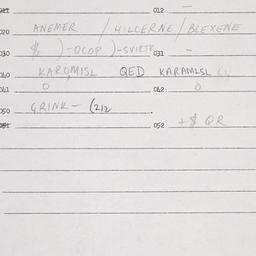 012 -
020 ANEMER / HILLERNE / BLEXENE
030 $ ) -OCOP ) -SVIRTE 031 -
040 KARQMISL QED KARAMLSL
041 0 042 0
050 GRINK - (212
051 052 +$ QR